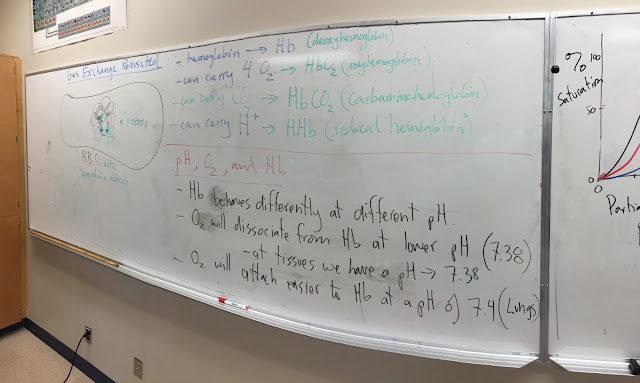 Gas Exchange Revisited:
- hemoglobin → Hb (deoxyhemoglobin)
- can carry 4 O₂ → HbO₂ (oxyhemoglobin)
- can carry CO₂ → HbCO₂ (carbaminohemoglobin)
- can carry H⁺ → HHb (reduced hemoglobin)
x 1000's
RBC with
hemoglobin molecules
pH, O₂, and Hb
- Hb behaves differently at different pH.
- O₂ will dissociate from Hb at lower pH (7.38)
- at tissues we have a pH → 7.38
- O₂ will attach easier to Hb at a pH of 7.4 (Lungs)
% Saturation
100
50
0
0
Partial